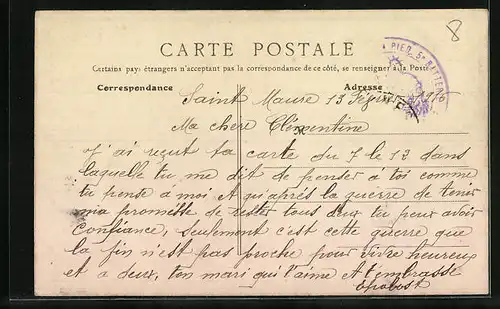 8
CARTE POSTALE
A PIED. 5e BATTERIE
Certains pays étrangers n'acceptant pas la correspondance de ce côté, se renseigner à la Poste
Correspondance
Adresse
Saint Maure 13 Février 1915
Ma chère Clémentine
J'ai reçut ta carte du 7 le 13 dans
laquelle tu me dit de penser à toi comme
tu pense à moi et qu'après la guerre de tenir
ma promesse de rester tous deux tu peux avoir
confiance, seulement c'est cette guerre que
la fin n'est pas proche pour vivre heureux
et a deux, ton mari qui t'aime et t'embrasse